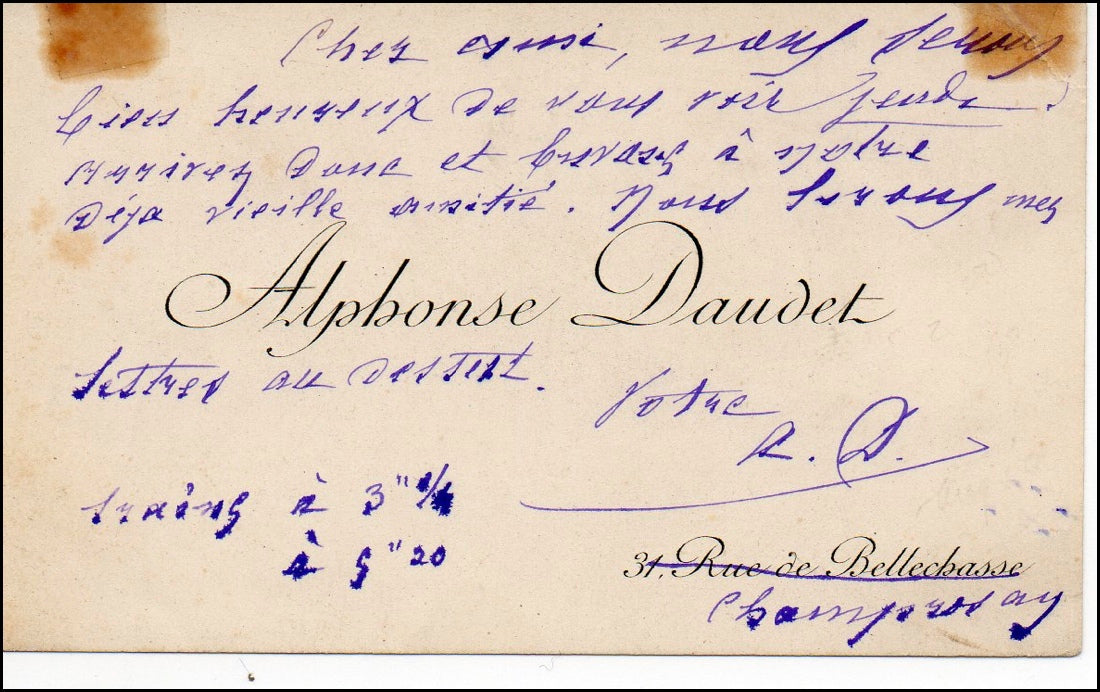 Cher ami, nous serons
bien heureux de vous voir jeudi.
arrivez donc et buvons à notre
déjà vieille amitié. Nous mes
Alphonse Daudet
lettres au dessert.
Votre
A. D.
trains à 3" 1/4
à 5" 20
31. Rue de Bellechasse
Champrosay